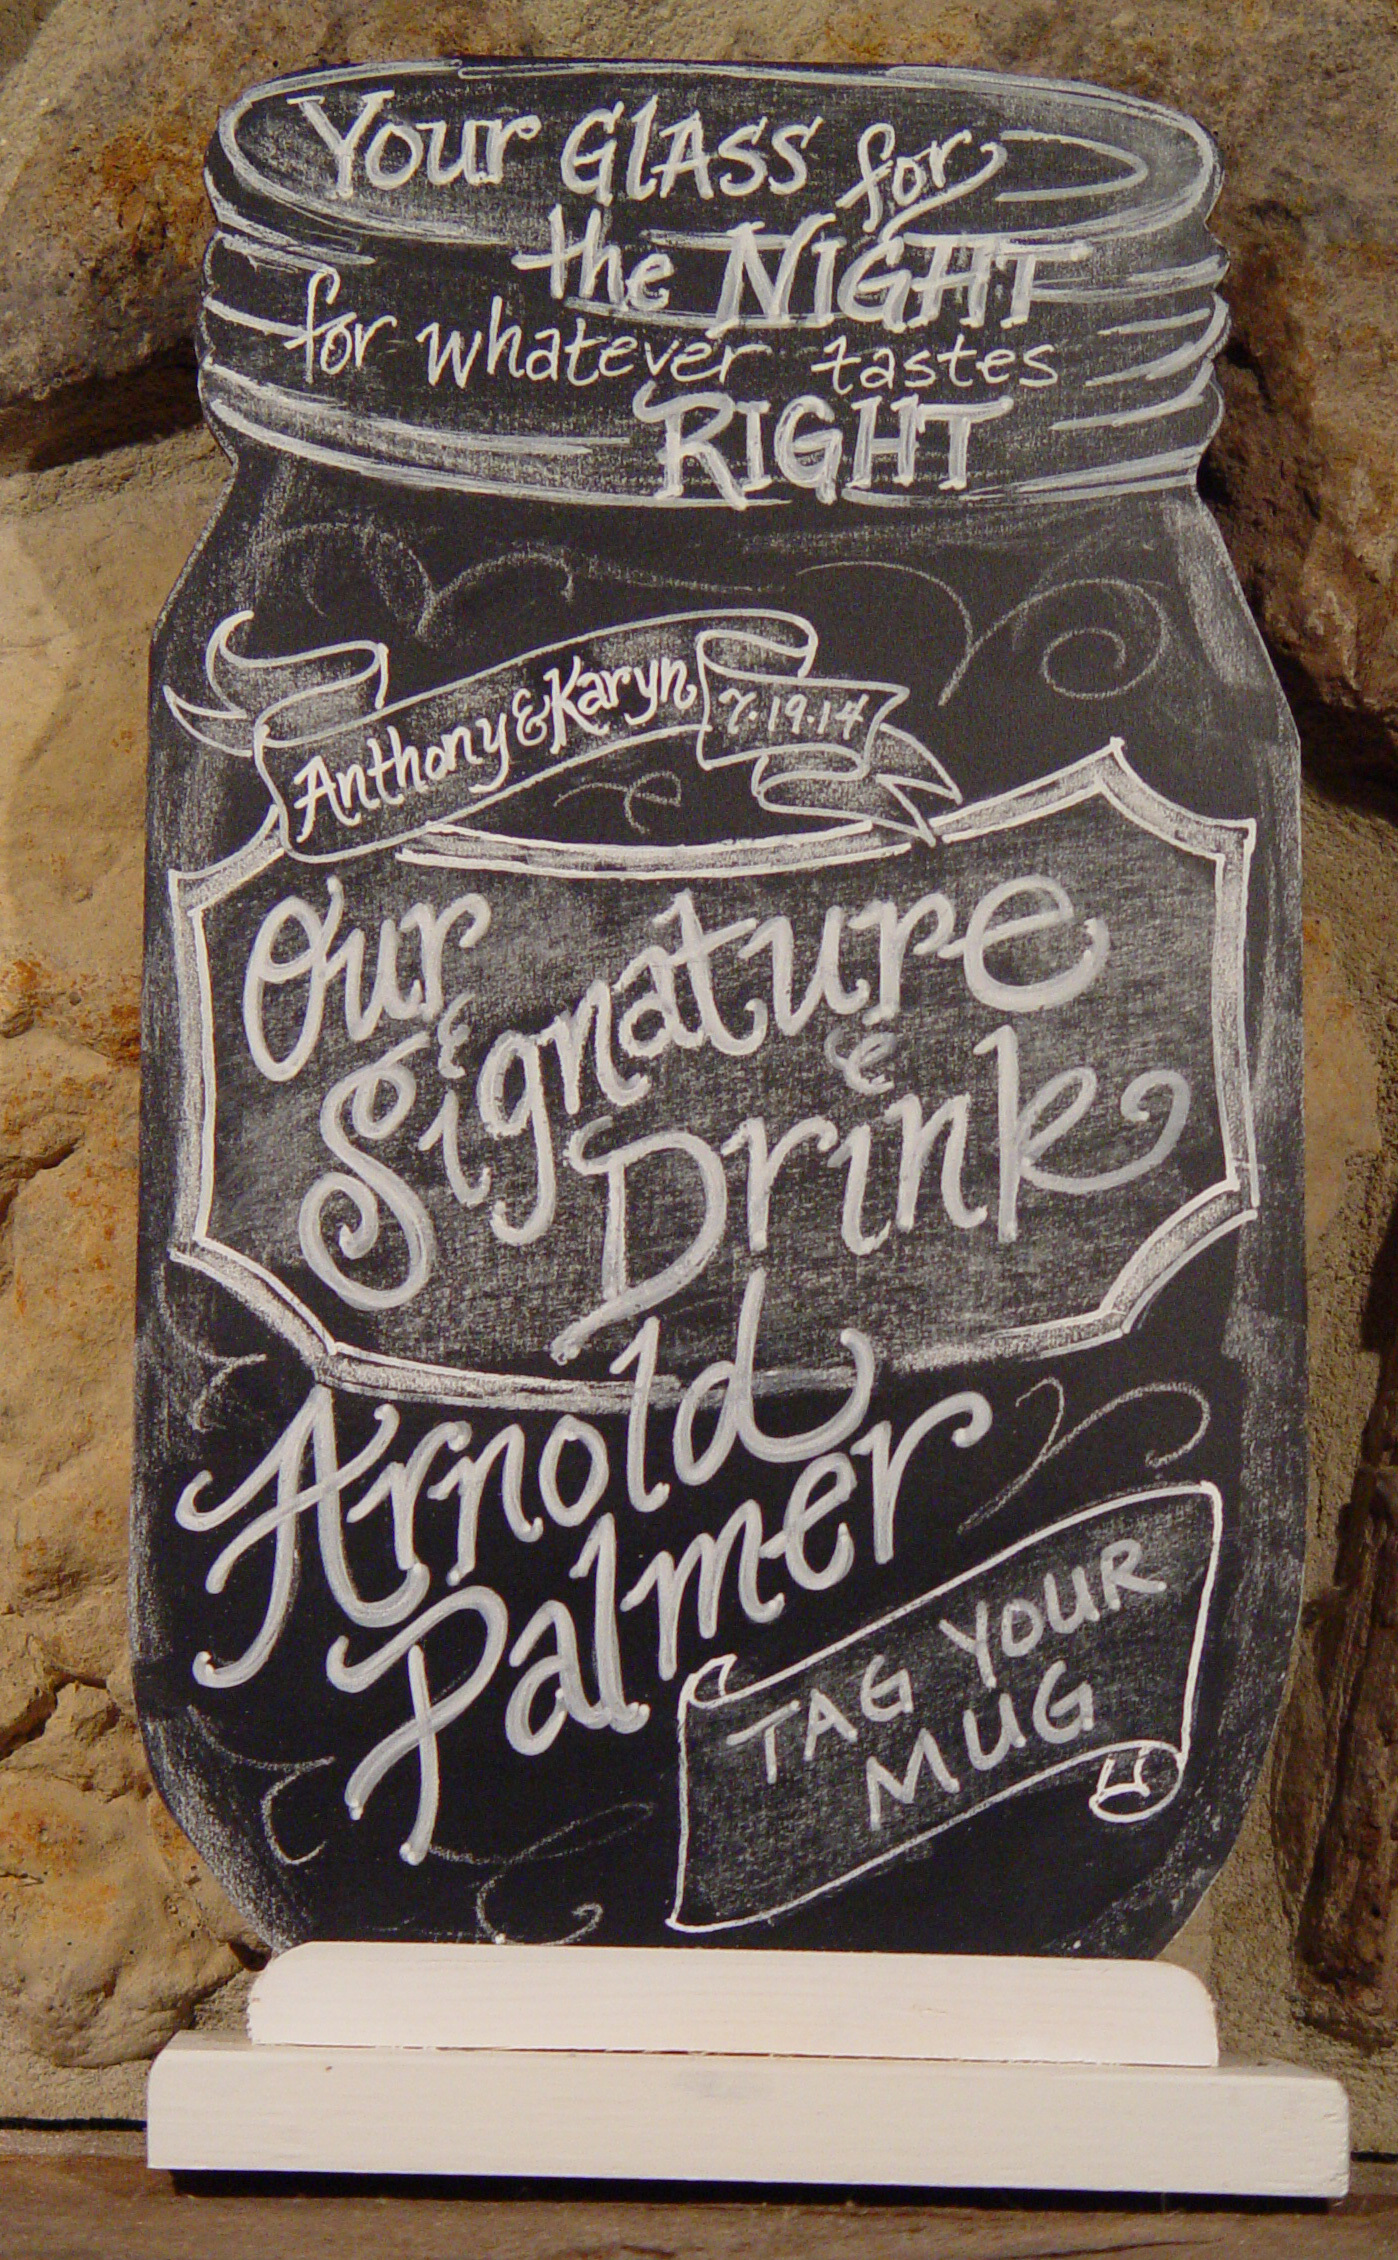 Your GLASS for
the NIGHT
for whatever tastes
RIGHT
Anthony & Karyn 7.19.14
Our
Signature
Drink
Arnold
Palmer
TAG YOUR
MUG